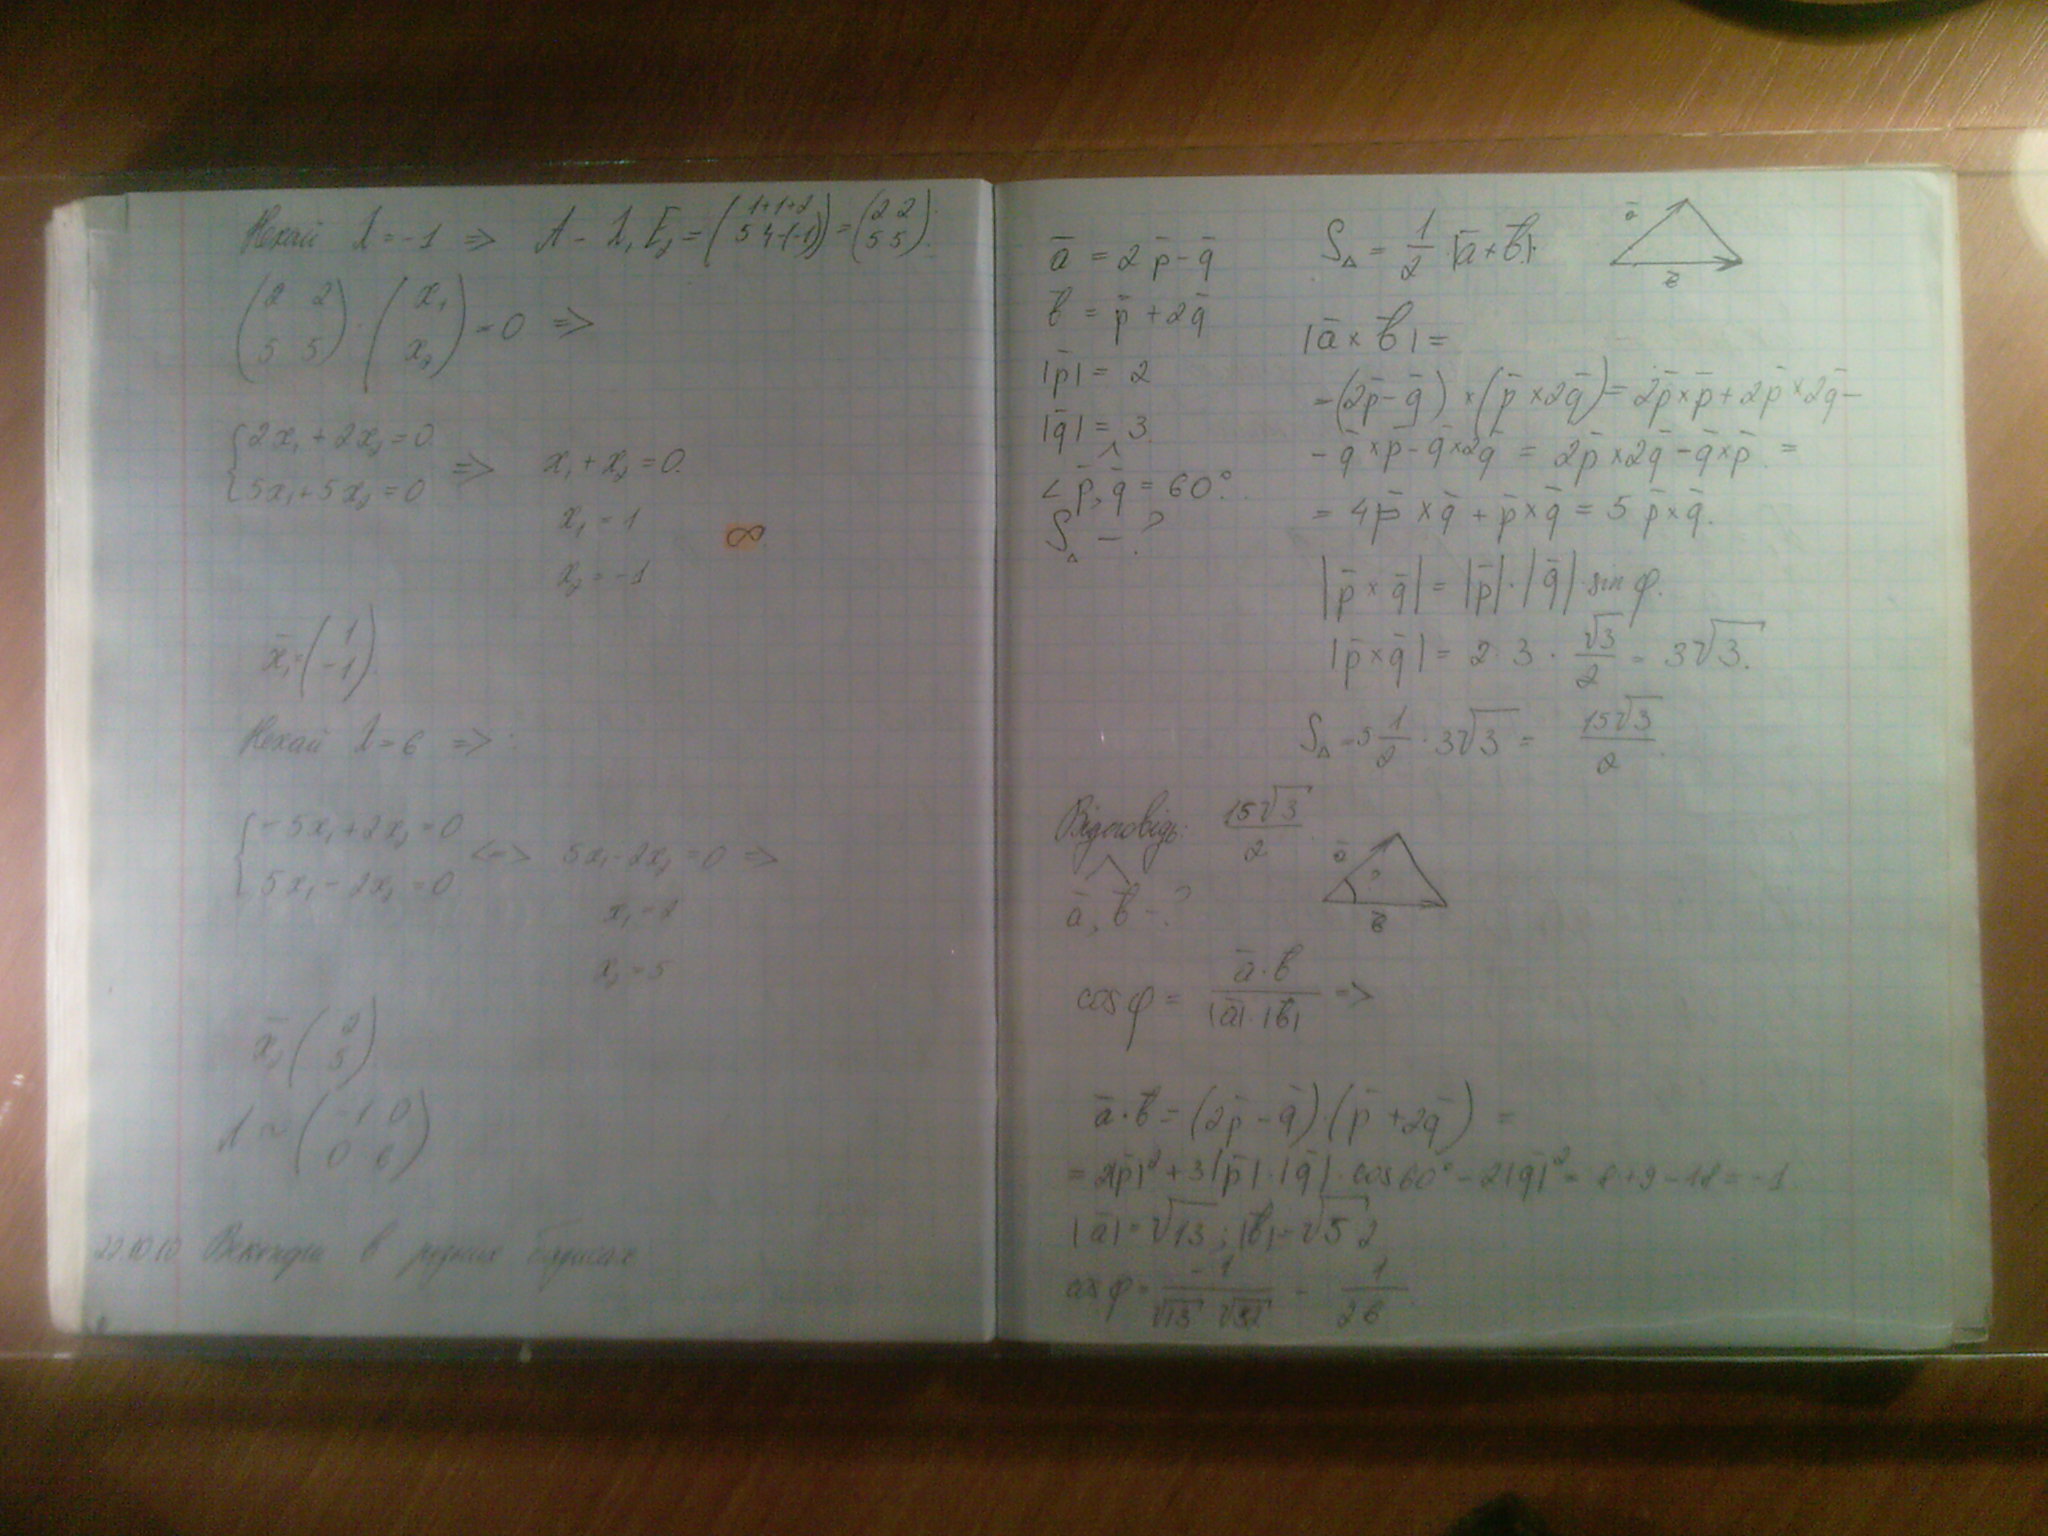 Нехай λ = -1 => A - λ₁E₂ = (1+1+2 5 4-(-1)) = (2 2 5 5).
(2 2 5 5) · (x₁ x₂) = 0 =>
{2x₁ + 2x₂ = 0
5x₁ + 5x₂ = 0 => x₁ + x₂ = 0.
x₁ = 1
∞
x₂ = -1
x̄₁ = (1 -1)
Нехай λ = 6 => :
{-5x₁ + 2x₂ = 0
5x₁ - 2x₂ = 0 <=> 5x₁ - 2x₂ = 0 =>
x₁ = 2
x₂ = 5
x̄₂ (2 5)
A ~ (-1 0 0 6)
22.10.10 в різних базисах
ā = 2p̄ - q̄
b̄ = p̄ + 2q̄
|p̄| = 2
|q̄| = 3
∠ p̄, q̄ = 60°.
S△ - ?
S△ = 1/2 · |ā × b̄|.
ā
b̄
|ā × b̄| =
= (2p̄ - q̄) × (p̄ × 2q̄) = 2p̄ × p̄ + 2p̄ × 2q̄ -
- q̄ × p̄ - q̄ × 2q̄ = 2p̄ × 2q̄ - q̄ × p̄. =
= 4p̄ × q̄ + p̄ × q̄ = 5 p̄ × q̄.
|p̄ × q̄| = |p̄| · |q̄| · sin φ.
|p̄ × q̄| = 2 · 3 · √3/2 = 3√3.
S△ = 5 1/2 · 3√3 = 15√3/2.
Відповідь: 15√3/2
ā, b̄ - ?
ā
?
b̄
cos φ = ā · b̄ / |ā| · |b̄| =>
ā · b̄ = (2p̄ - q̄) · (p̄ + 2q̄) =
= 2|p̄|² + 3|p̄| · |q̄| · cos 60° - 2|q̄|² = 8 + 9 - 18 = -1
|ā| = √13 ; |b̄| = √52
cos φ = -1 / √13 · √52 = - 1/26.